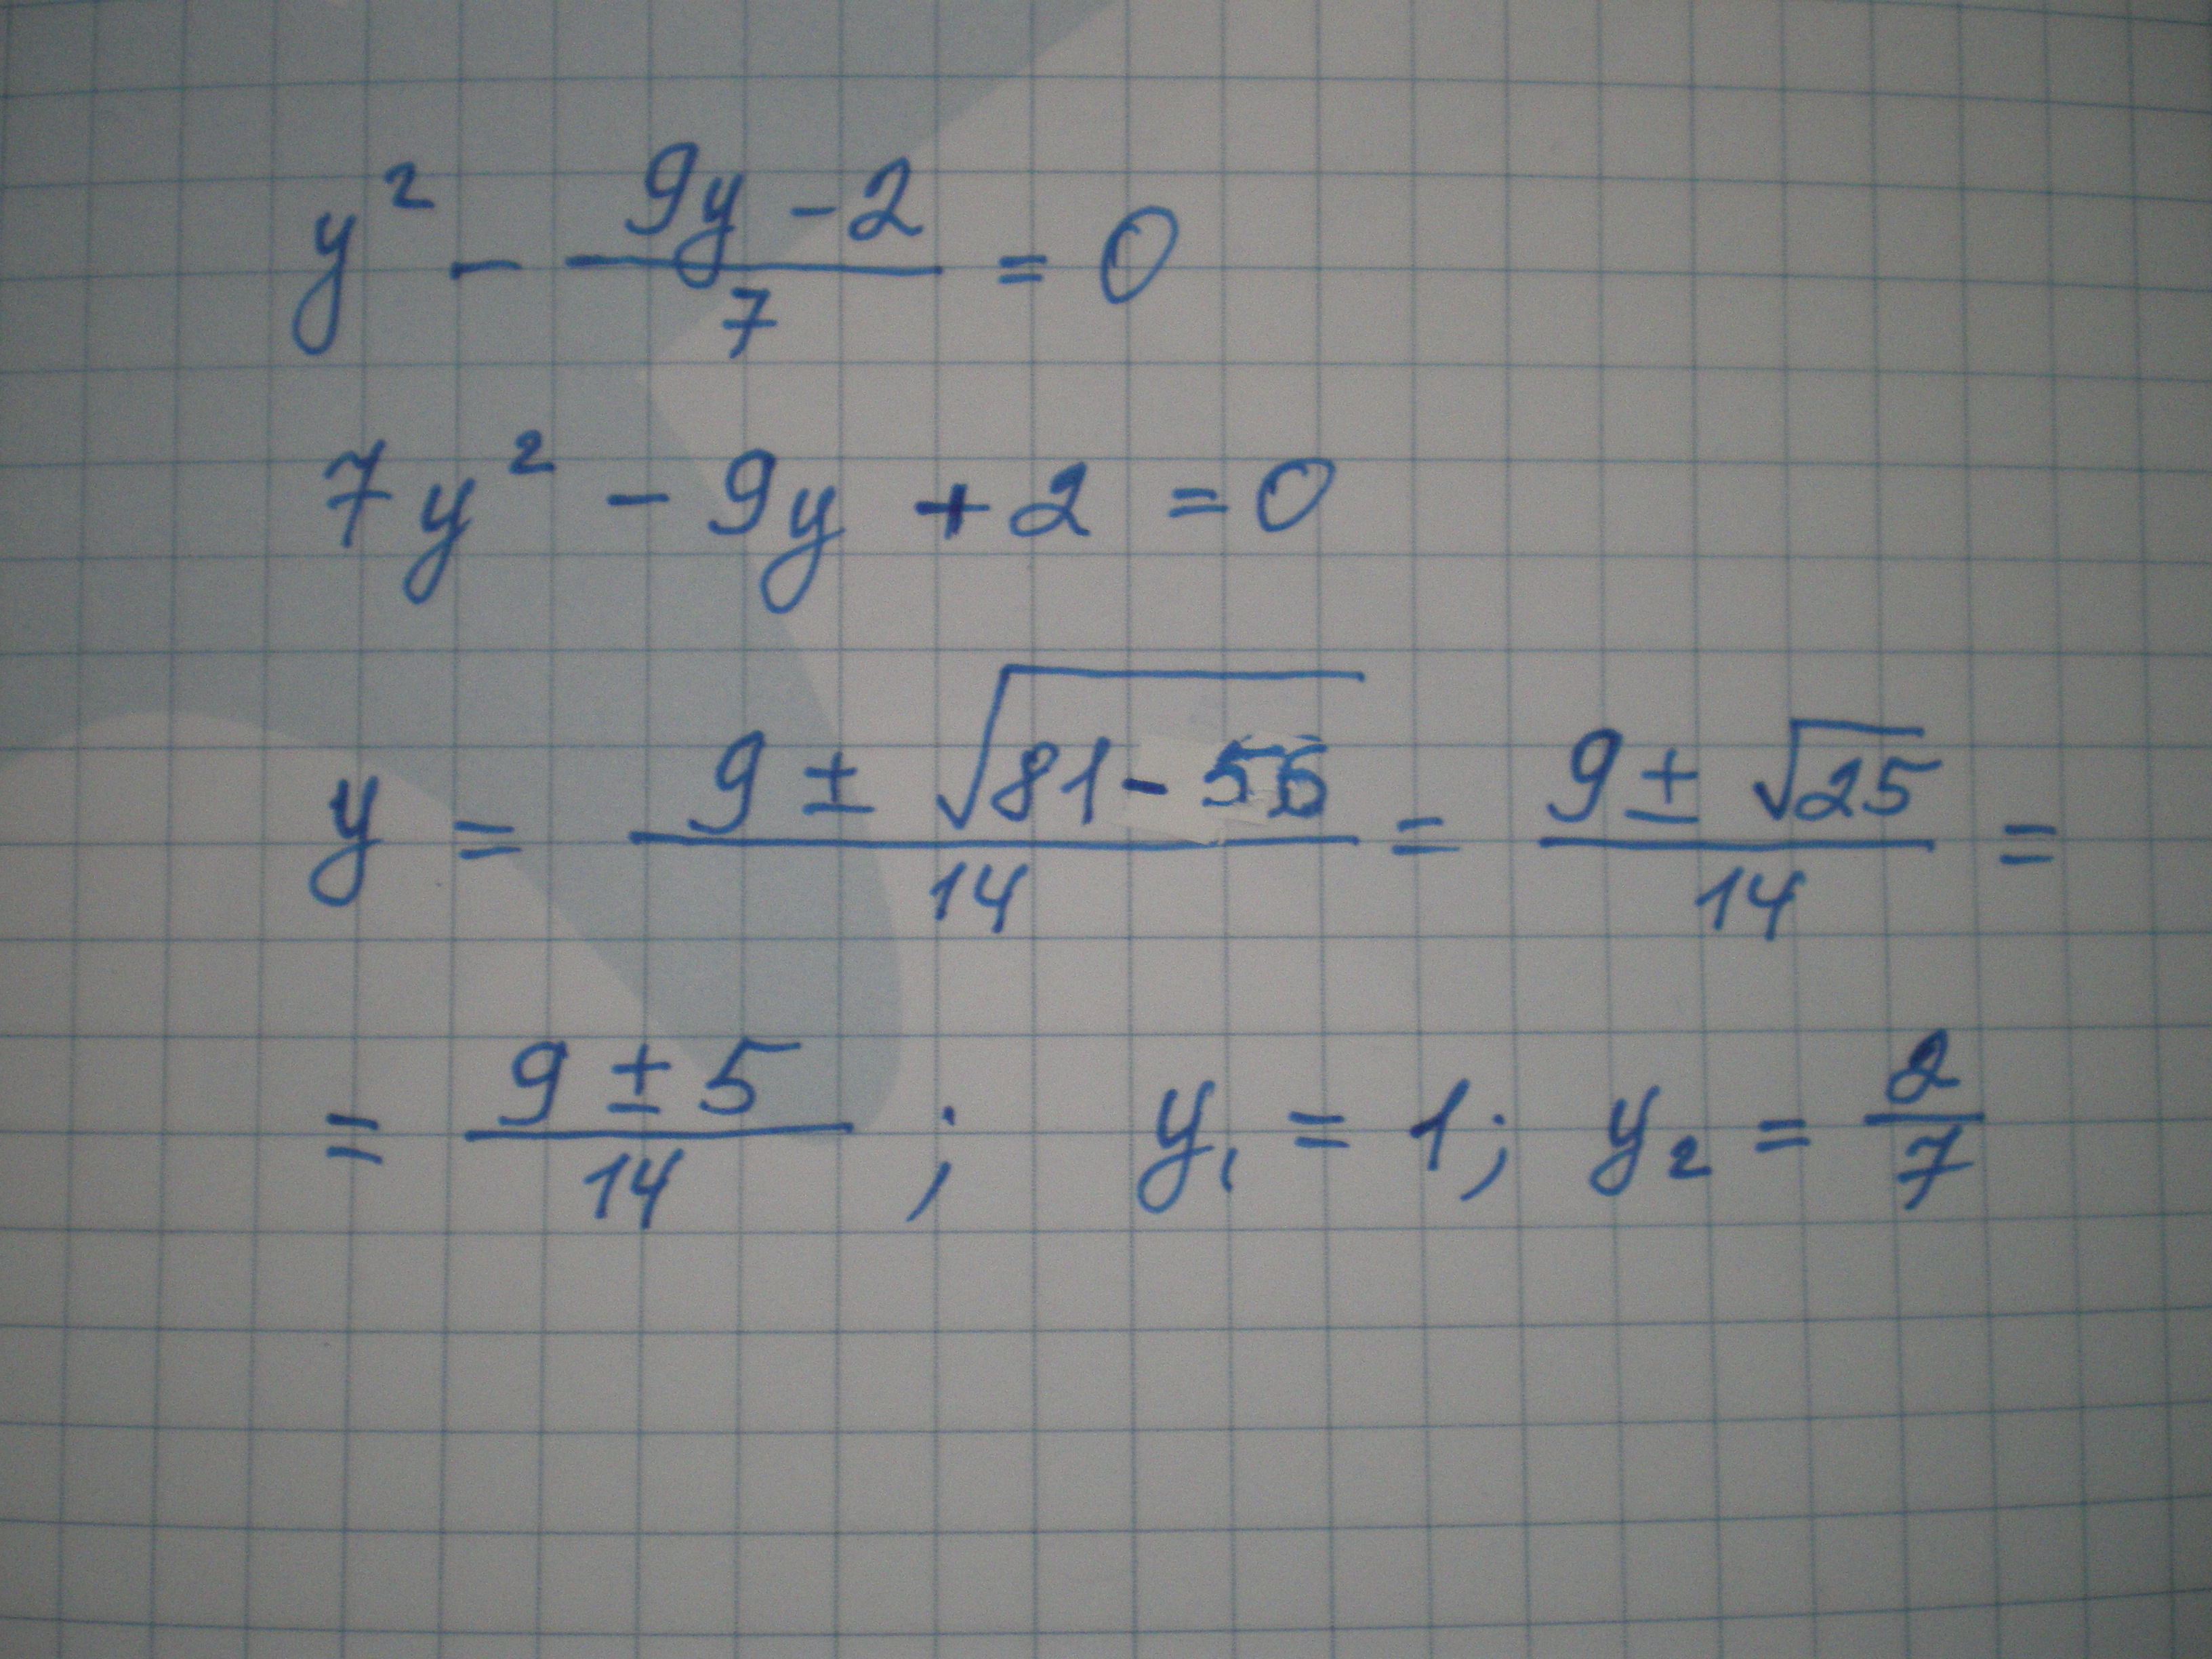 y² - (9y - 2)/7 = 0
7y² - 9y + 2 = 0
y = (9 ± √(81 - 56))/14 = (9 ± √25)/14 =
= (9 ± 5)/14 ; y₁ = 1; y₂ = 2/7